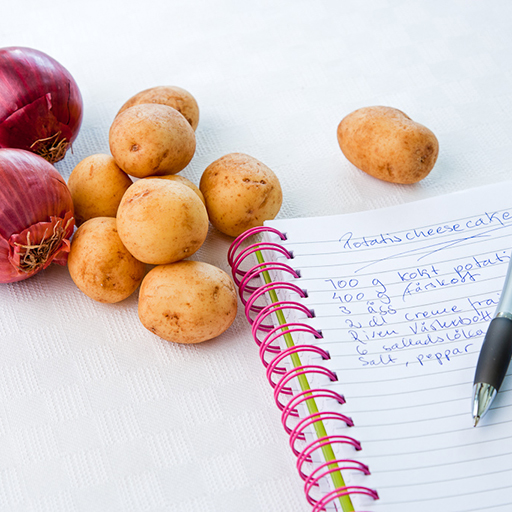 Potatischeesecake
700 g kokt potatis
400 g färskost
3 ägg
2 dl creme fra
Riven Västerbott
6 salladslöka
Salt, peppar